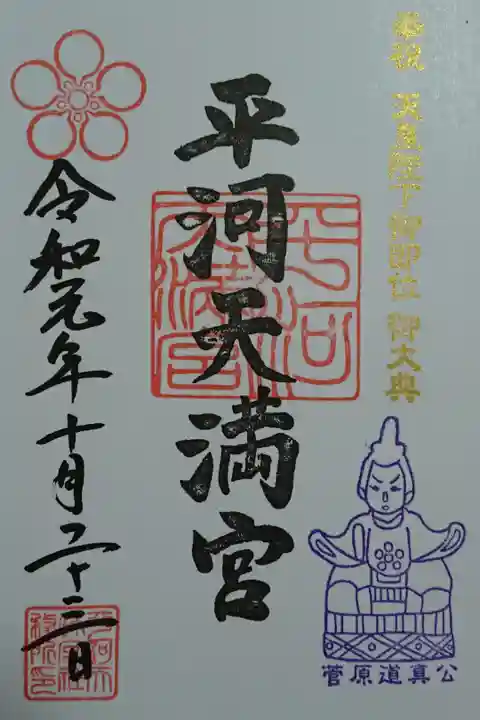 奉祝 天皇陛下御即位 御大典
菅原道真公
平河天満宮
平河天満宮
令和元年十月二十二日